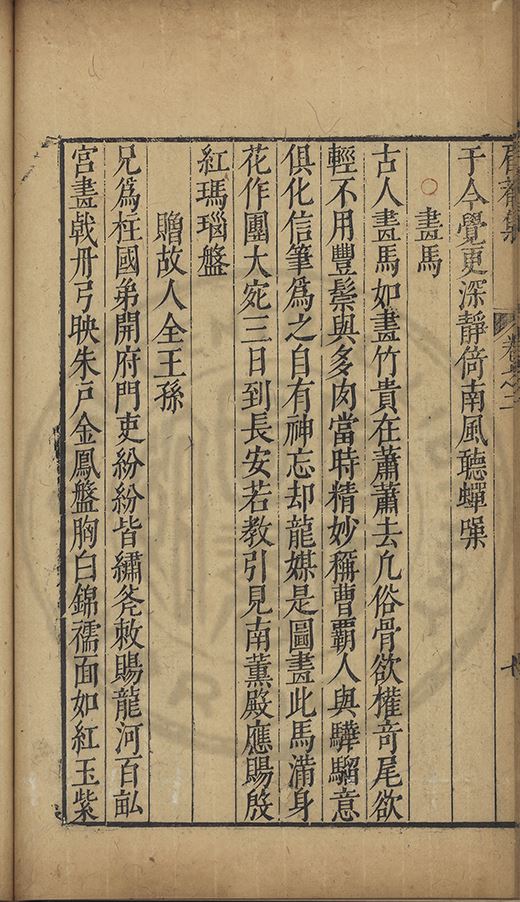 于今覺更深靜倚南風聽蟬噪
畫馬
古人畫馬如畫竹貴在蕭蕭去凡俗骨欲權竒尾欲
輕不用豐鬃與多肉當時精妙稱曹覇人與驊騮意
俱化信筆爲之自有神忘却龍媒是圖畫此馬滿身
花作團大宛三日到長安若教引見南薫殿應賜殷
紅瑪瑙盤
贈故人全王孫
兄爲柱國弟開府門吏紛紛皆繡斧敕賜龍河百畝
宮畫戟丹弓映朱戸金鳳盤胸白錦襦面如紅玉紫